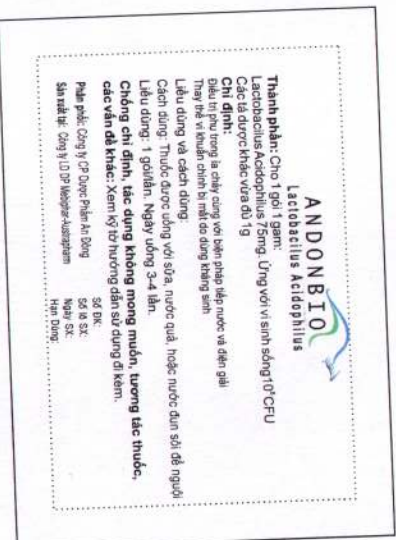 ANDONBIO
Lactobacilus Acidophilus
Thành phần: Cho 1 gói 1 gam:
Lactobacilus Acidophilus 75mg. Ứng với vi sinh sống 10⁸ CFU
Các tá dược khác vừa đủ 1g
Chỉ định:
Điều trị phụ trong ỉa chảy cùng với biện pháp tiếp nước và điện giải
Thay thế vi khuẩn chính bị mất do dùng kháng sinh
Liều dùng và cách dùng:
Cách dùng: Thuốc được uống với sữa, nước quả, hoặc nước đun sôi để nguội
Liều dùng: 1 gói/lần. Ngày uống 3-4 lần.
Chống chỉ định, tác dụng không mong muốn, tương tác thuốc,
các vấn đề khác: Xem kỹ tờ hướng dẫn sử dụng đi kèm.
Số ĐK:
Phân phối: Công ty CP Dược Phẩm An Đông
Số lô SX:
Ngày SX:
Sản xuất tại: Công ty LD DP Mebiphar-Austrapharm
Hạn Dùng: